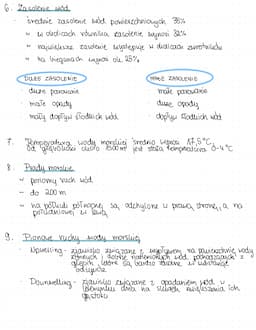 6. Zasolenie wód.
średnie zasolenie wód powierzchniowych 35‰
w okolicach równika zasolenie wynosi 32‰
największe zasolenie występuje w okolicach zwrotników
na biegunach wynosi ok. 25‰
DUŻE ZASOLENIE
MAŁE ZASOLENIE
duże parowanie
małe parowanie
małe opady
duże opady
mały dopływ słodkich wód
dopływ słodkich wód
7. Temperatura wody morskiej średnio wynosi 17,5°C,
od głębokości około 1500 m jest stała temperatura 2-4°C
8. Prądy morskie
poziomy ruch wód
do 200 m
na półkuli północnej są odchylone w prawą stronę, a na
południowej w lewą
9. Pionowe ruchy wody morskiej
Upwelling - zjawisko związane z wypływem na powierzchnię wody
zimnych i dobrze natlenionych wód pochodzących z
głębin, które są bardzo
Downwelling - zjawisko związane z opadaniem wód w
kierunku dna na skutek zwiększania ich
gęstości